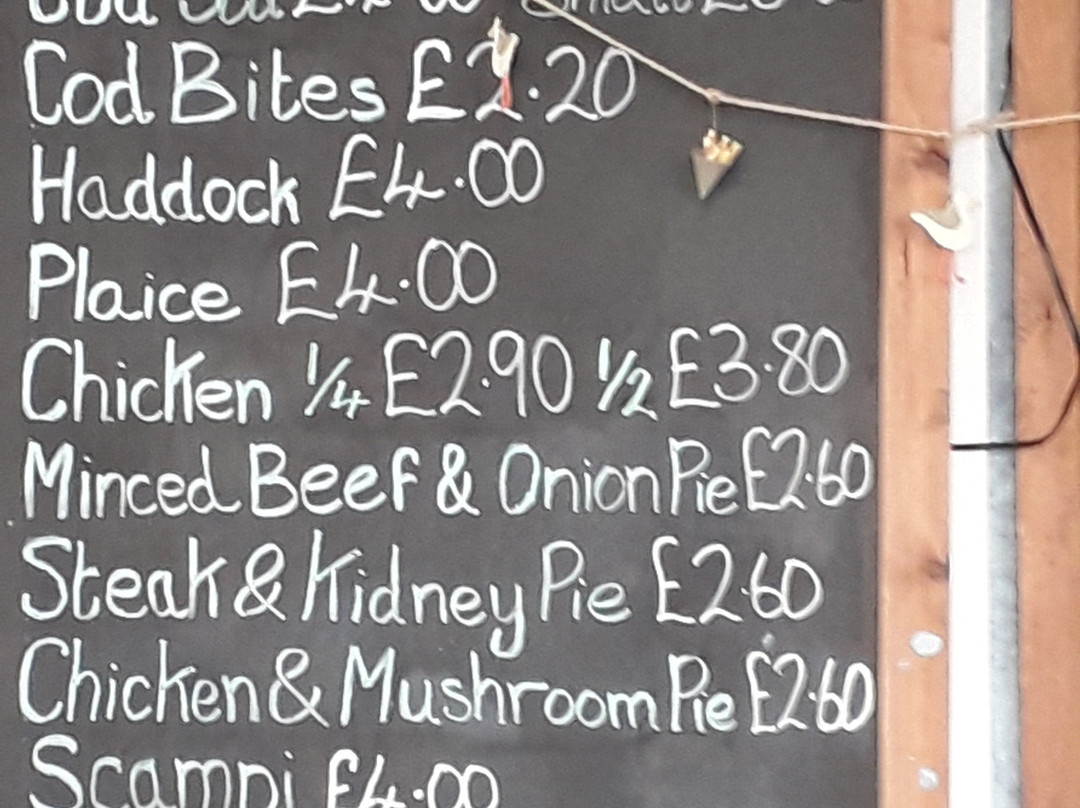 Cod Bites £2.20
Haddock £4.00
Plaice £4.00
Chicken 1/4 £2.90 1/2 £3.80
Minced Beef & Onion Pie £2.60
Steak & Kidney Pie £2.60
Chicken & Mushroom Pie £2.60
Scampi £4.00